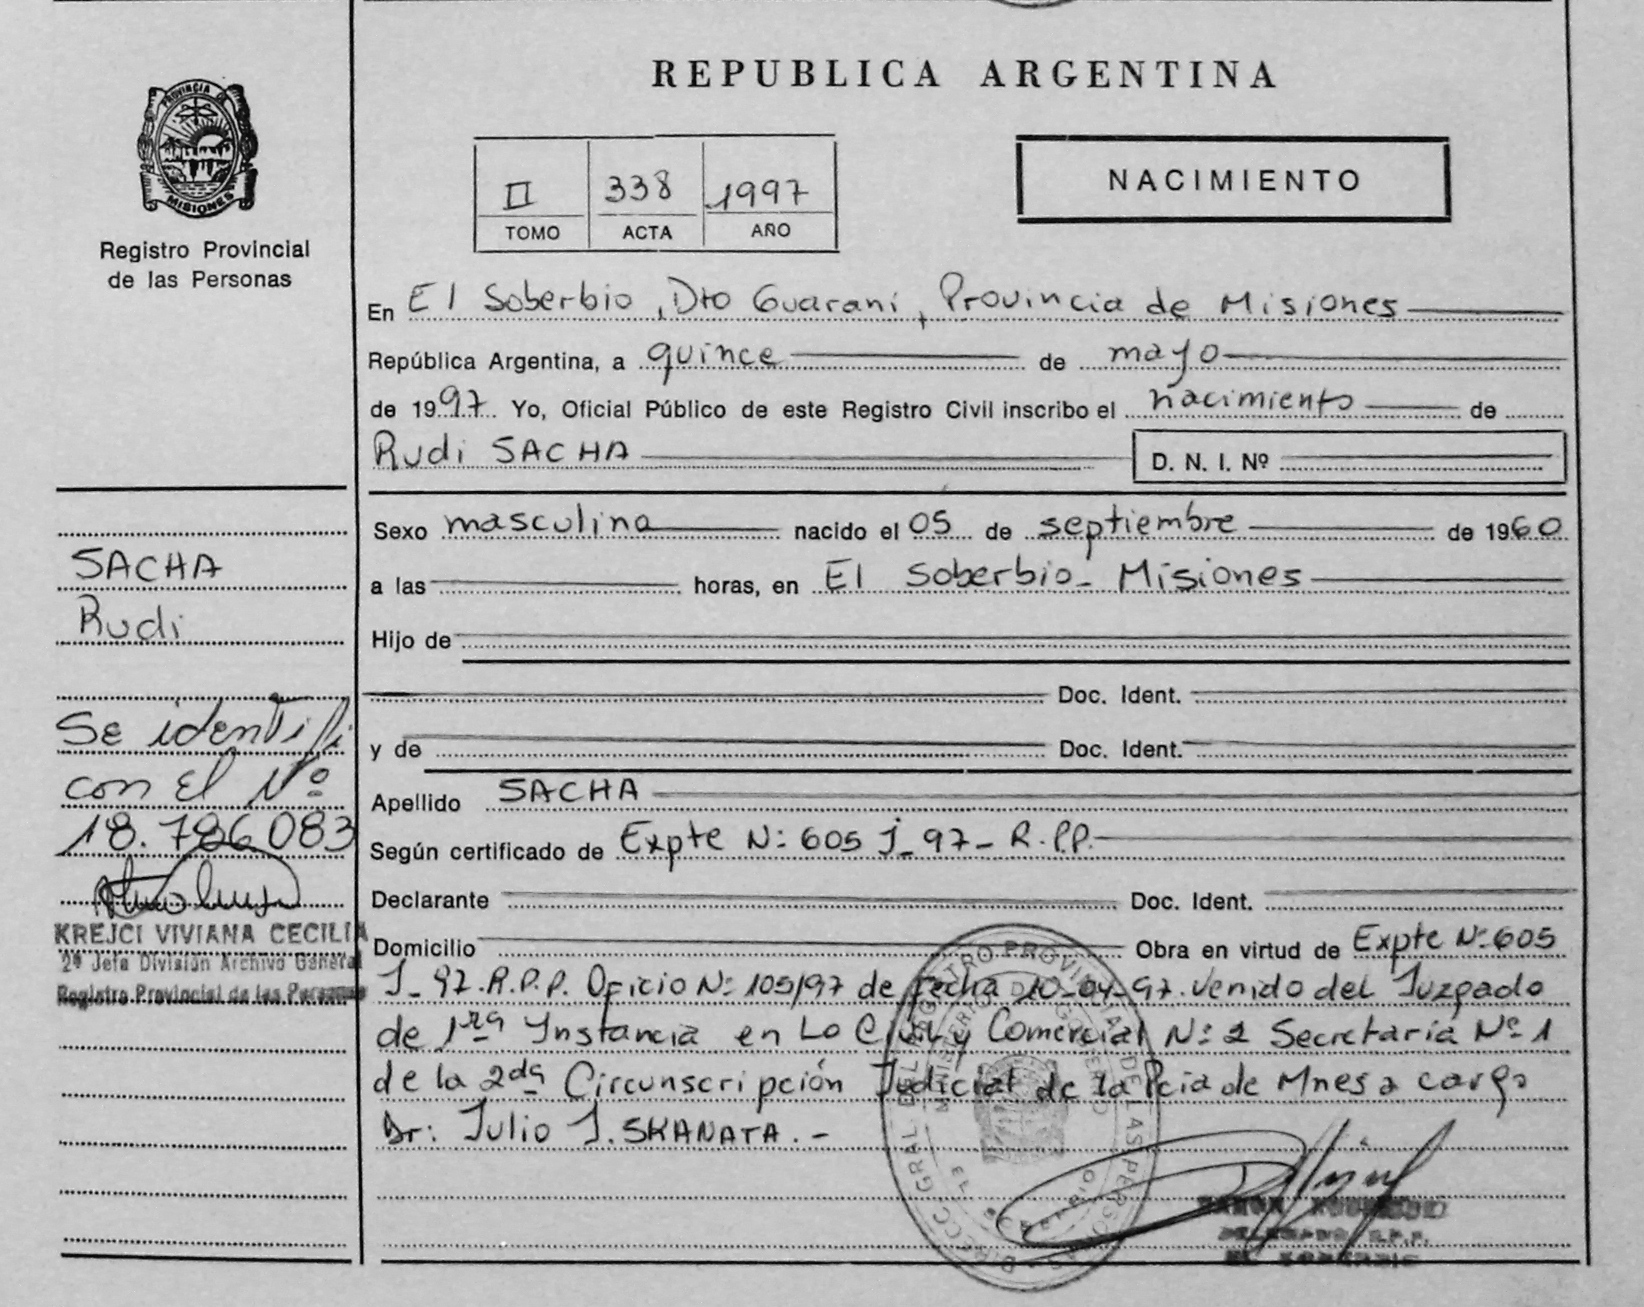 PROVINCIA DE
MISIONES
Registro Provincial
de las Personas
REPUBLICA ARGENTINA
II 338 1997
TOMO ACTA AÑO
NACIMIENTO
En El Soberbio, Dto Guarani, Provincia de Misiones
República Argentina, a quince de mayo
de 1997. Yo, Oficial Público de este Registro Civil inscribo el nacimiento de
Rudi SACHA D. N. I. Nº
Sexo masculino nacido el 05 de septiembre de 1960
a las horas, en El Soberbio - Misiones
Hijo de
Doc. Ident.
y de Doc. Ident.
Apellido SACHA
Según certificado de Expte N: 605 J-97- R.P.P.
Declarante Doc. Ident.
Domicilio Obra en virtud de Expte Nº 605
J-97.R.P.P. Oficio N: 105/97 de fecha 10-04-97 venido del Juzgado
de 1ra Instancia en Lo Civil y Comercial N: 2 Secretaría Nº 1
de la 2da Circunscripción Judicial de la Pcia de Mnes a cargo
Dr: Julio J. SKANATA.-
SACHA
Rudi
Se identifi
con el Nº
18.786083
KREJCI VIVIANA CECILIA
2ª Jefa División Archivo General
Registro Provincial de las Personas
DIRECC GRAL DEL REGISTRO PROVINCIAL DE LAS PERSONAS
MINISTERIO DE GOBIERNO
EL SOBERBIO
DELEGADO R.P.P.
EL SOBERBIO